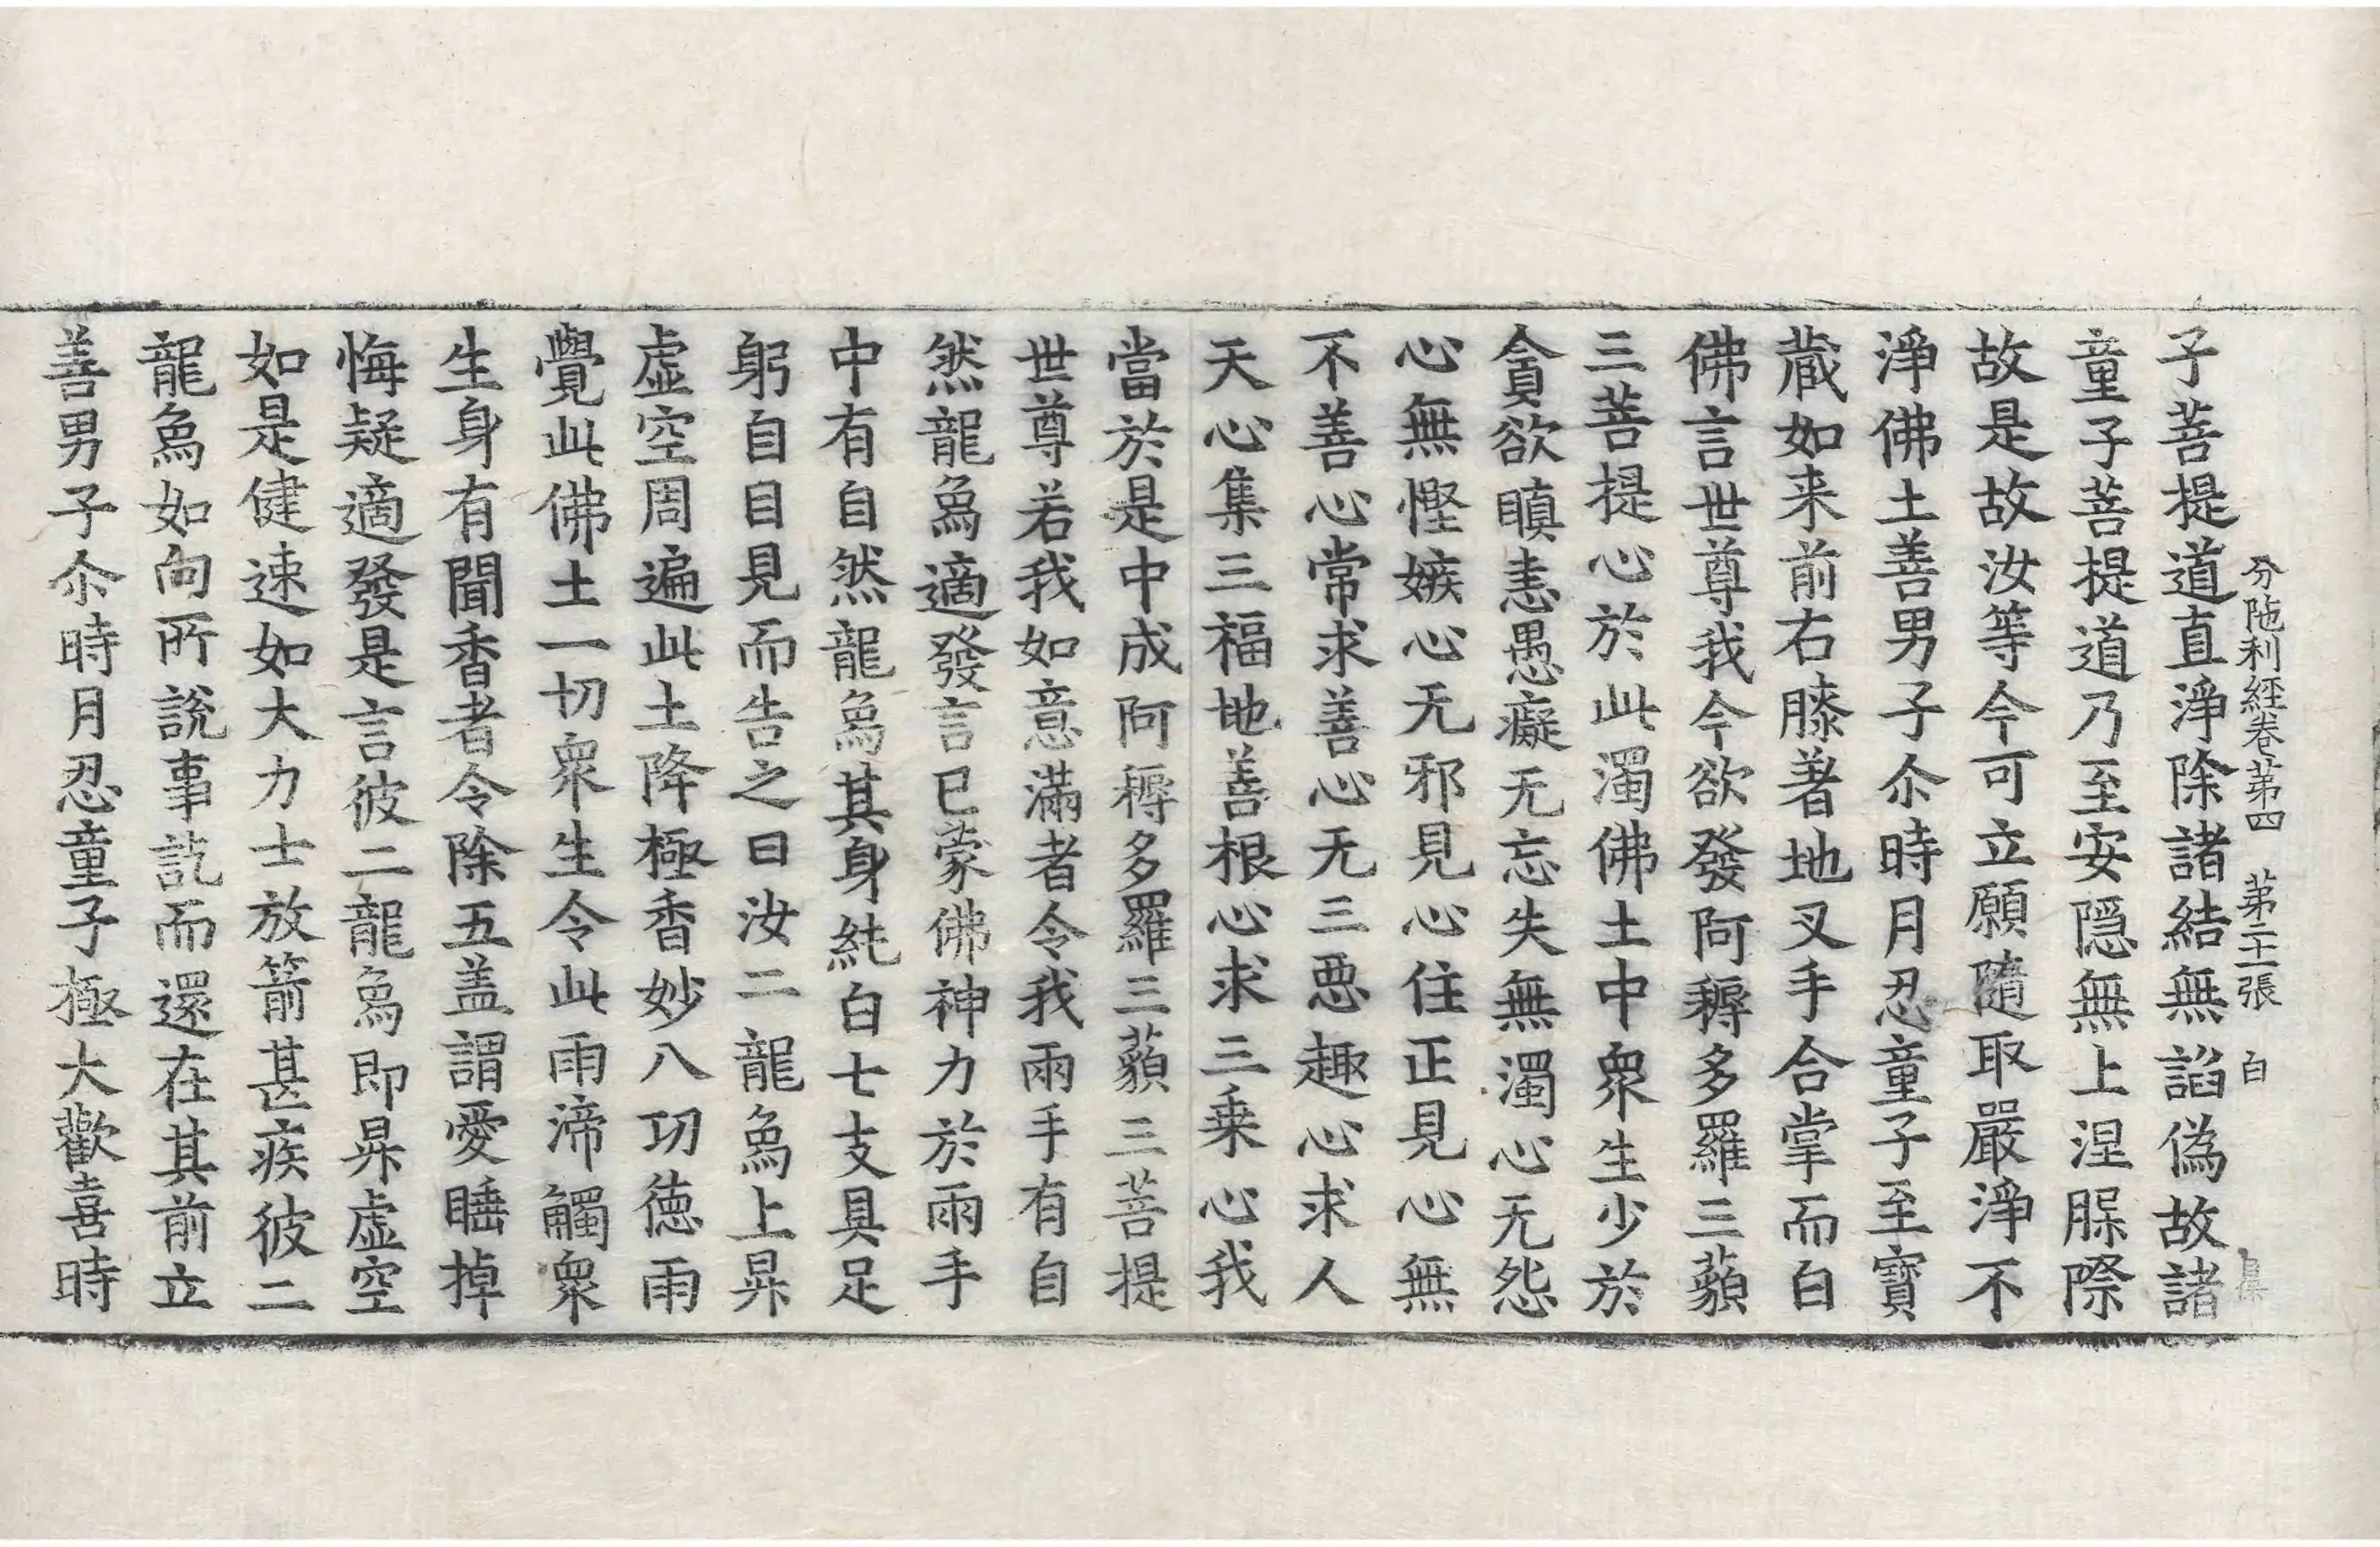 分陁利經卷第四　第二十一張　白
子菩提道直淨除諸結無諂偽故諸
童子菩提道乃至安隠無上涅脲際
故是故汝等今可立願隨取嚴淨不
淨佛土善男子尒時月忍童子至寶
蔵如来前右膝著地叉手合掌而白
佛言世尊我今欲發阿耨多羅三藐
三菩提心於此濁佛土中衆生少於
貪欲瞋恚愚癡无忘失無濁心无怨
心無慳嫉心无邪見心住正見心無
不善心常求善心无三惡趣心求人
天心集三福地善根心求三乗心我
當於是中成阿耨多羅三藐三菩提
世尊若我如意滿者令我兩手有自
然龍烏適發言已蒙佛神力於兩手
中有自然龍烏其身純白七支具足
躬自目見而告之曰汝二龍烏上昇
虛空周遍此土降極香妙八功德雨
覺此佛土一切衆生令此雨渧觸衆
生身有聞香者令除五盖謂愛睡掉
悔疑適發是言彼二龍烏即昇虛空
如是健速如大力士放箭甚疾彼二
龍烏如向所說事訖而還在其前立
善男子尒時月忍童子極大歡喜時